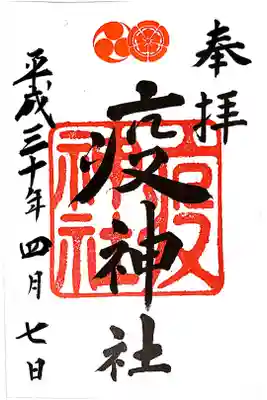 奉拝
疫神社
疫神社
平成三十年四月七日